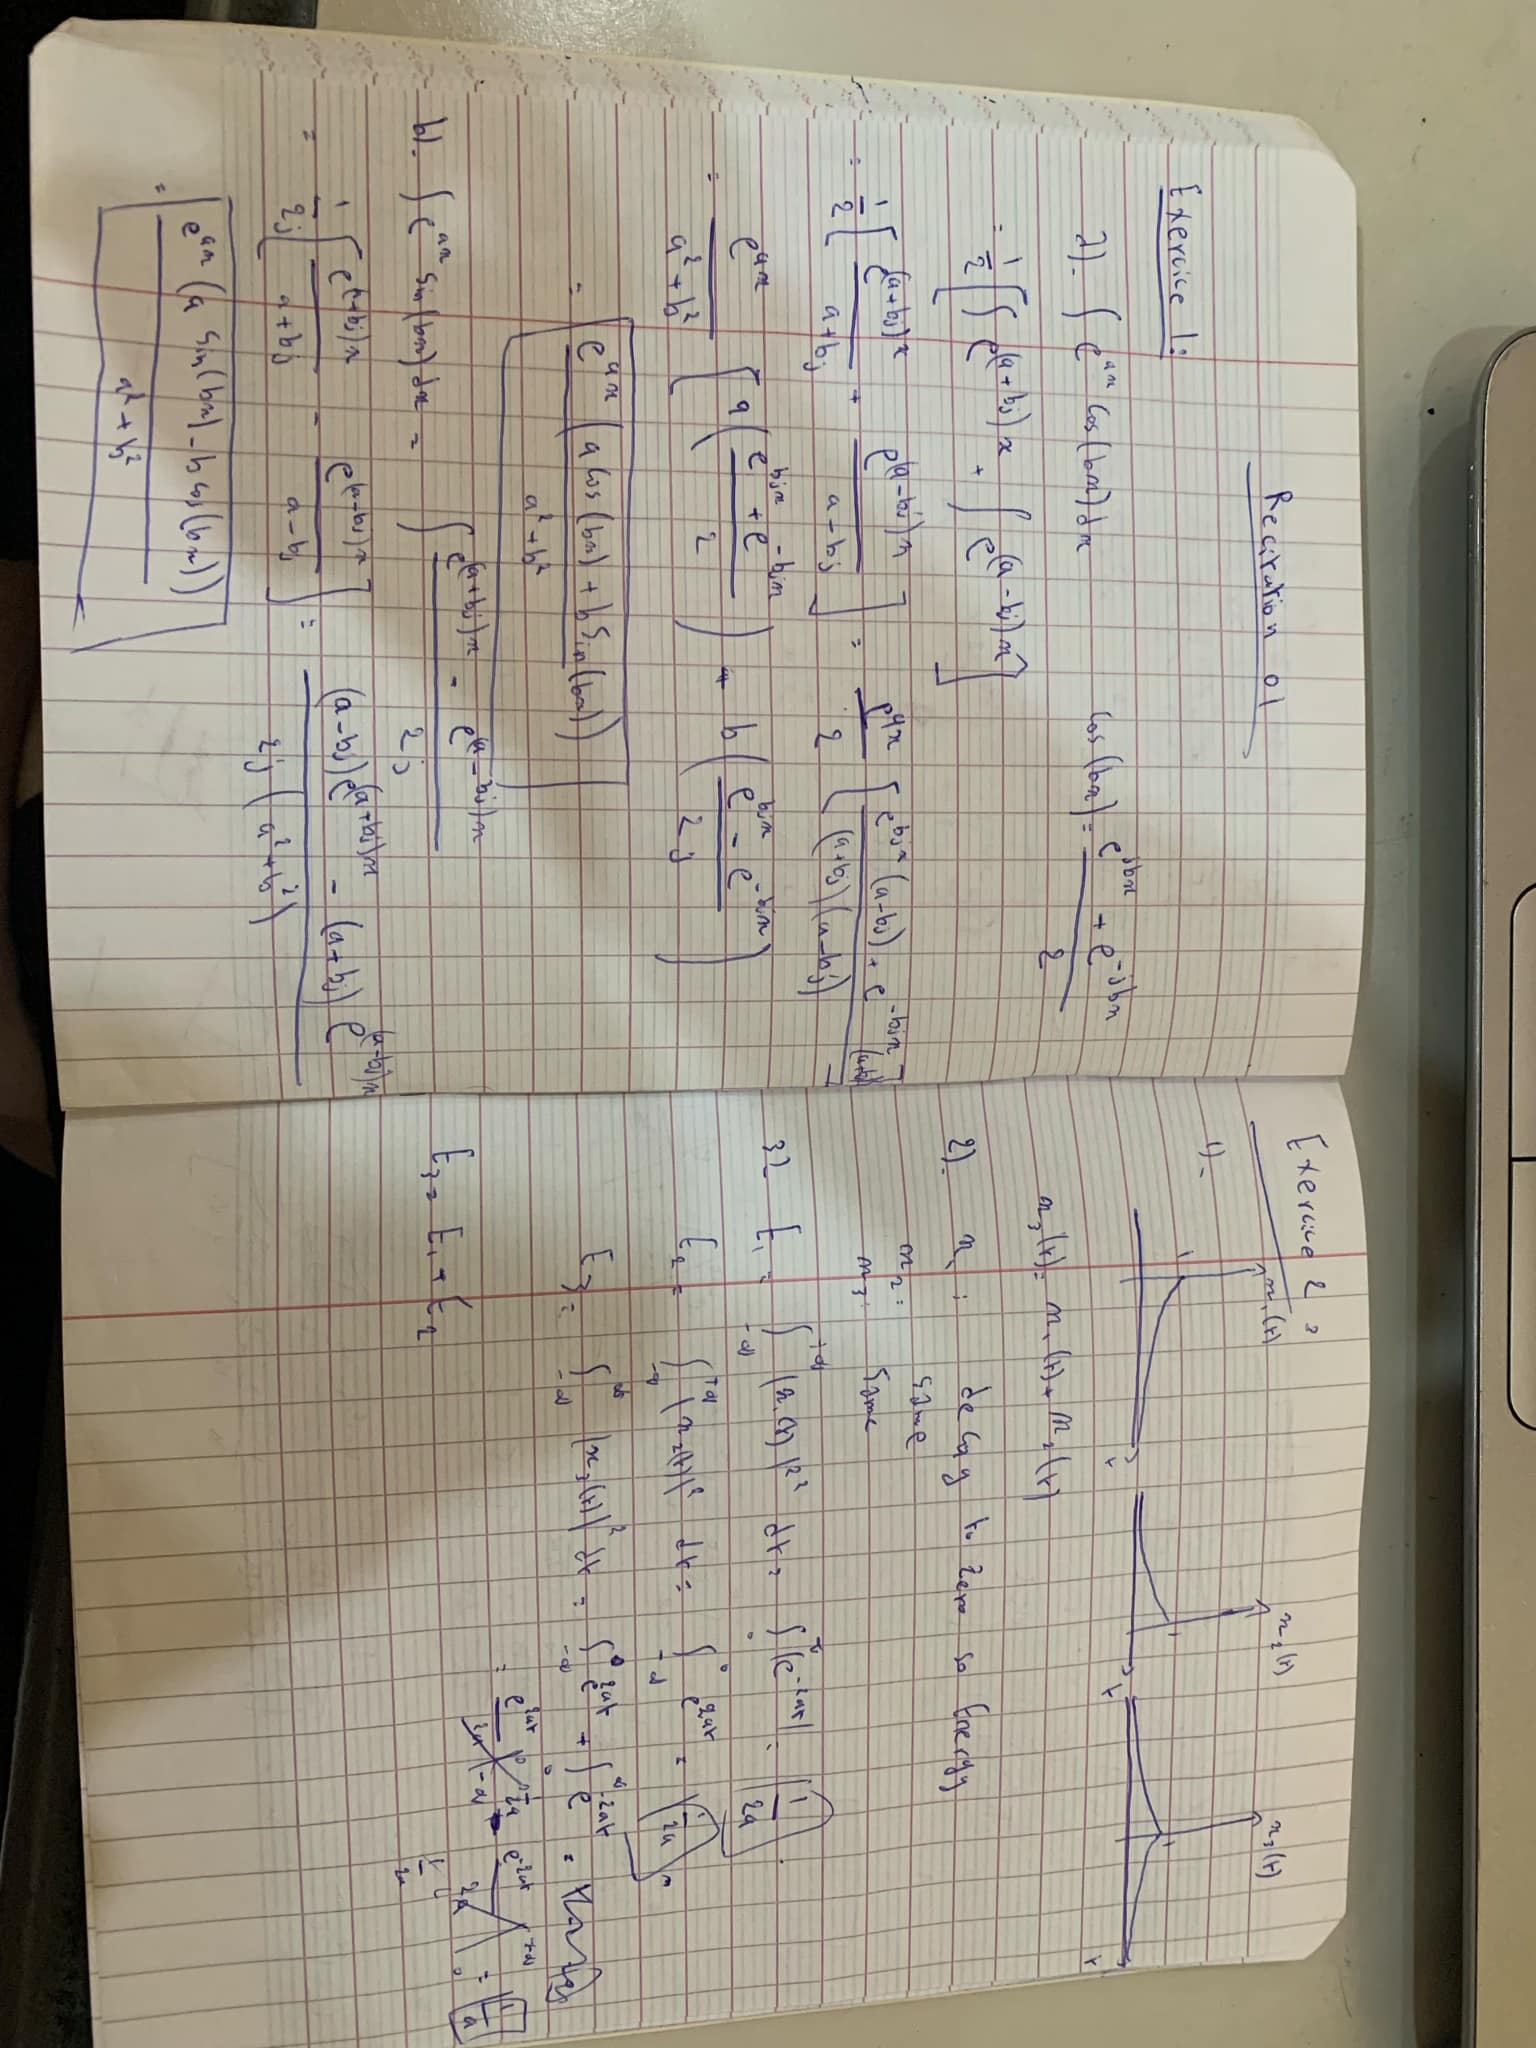 Recitation 01
Exercice 1:
a). ∫ e^{ax} cos(bx) dx    cos(bx) = (e^{jbx} + e^{-jbx}) / 2
= 1/2 [ ∫ e^{(a+bj)x} + ∫ e^{(a-bj)x} ]
= 1/2 [ e^{(a+bj)x} / (a+bj) + e^{(a-bj)x} / (a-bj) ] = e^{ax} / 2 [ (e^{bjx} (a-bj) + e^{-bjx} (a+bj)) / ((a+bj)(a-bj)) ]
= e^{ax} / (a² + b²) [ a ( (e^{bjx} + e^{-bjx}) / 2 ) + b ( (e^{bjx} - e^{-bjx}) / 2j ) ]
= e^{ax} (a cos(bx) + b sin(bx)) / (a² + b²)
b). ∫ e^{ax} sin(bx) dx = ∫ (e^{(a+bj)x} - e^{(a-bj)x}) / 2j
= 1/2j [ e^{(a+bj)x} / (a+bj) - e^{(a-bj)x} / (a-bj) ] = ((a-bj) e^{(a+bj)x} - (a+bj) e^{(a-bj)x}) / (2j (a² + b²))
= e^{ax} (a sin(bx) - b cos(bx)) / (a² + b²)
Exercice 2 :
x₁(t)    x₂(t)    x₃(t)
1)-
1    1    1
t    t    t
x₃(t) = x₁(t) + x₂(t)
2). x₁ : decay to zero so Energy
x₂: same
x₃: same
3) E₁ = ∫_{-∞}^{+∞} |x₁(t)|² dt = ∫_0^∞ |e^{-2at}| = 1/2a
E₂ = ∫_{-∞}^{+∞} |x₂(t)|² dt = ∫_{-∞}^0 e^{2at} = 1/2a
E₃ = ∫_{-∞}^{∞} |x₃(t)|² dt = ∫_{-∞}^0 e^{2at} + ∫_0^∞ e^{-2at} =
= e^{2at} / 2a |_{-∞}^0 1/2a - e^{-2at} / 2a |_0^{+∞} = 1/a
1/2a
E₃ = E₁ + E₂